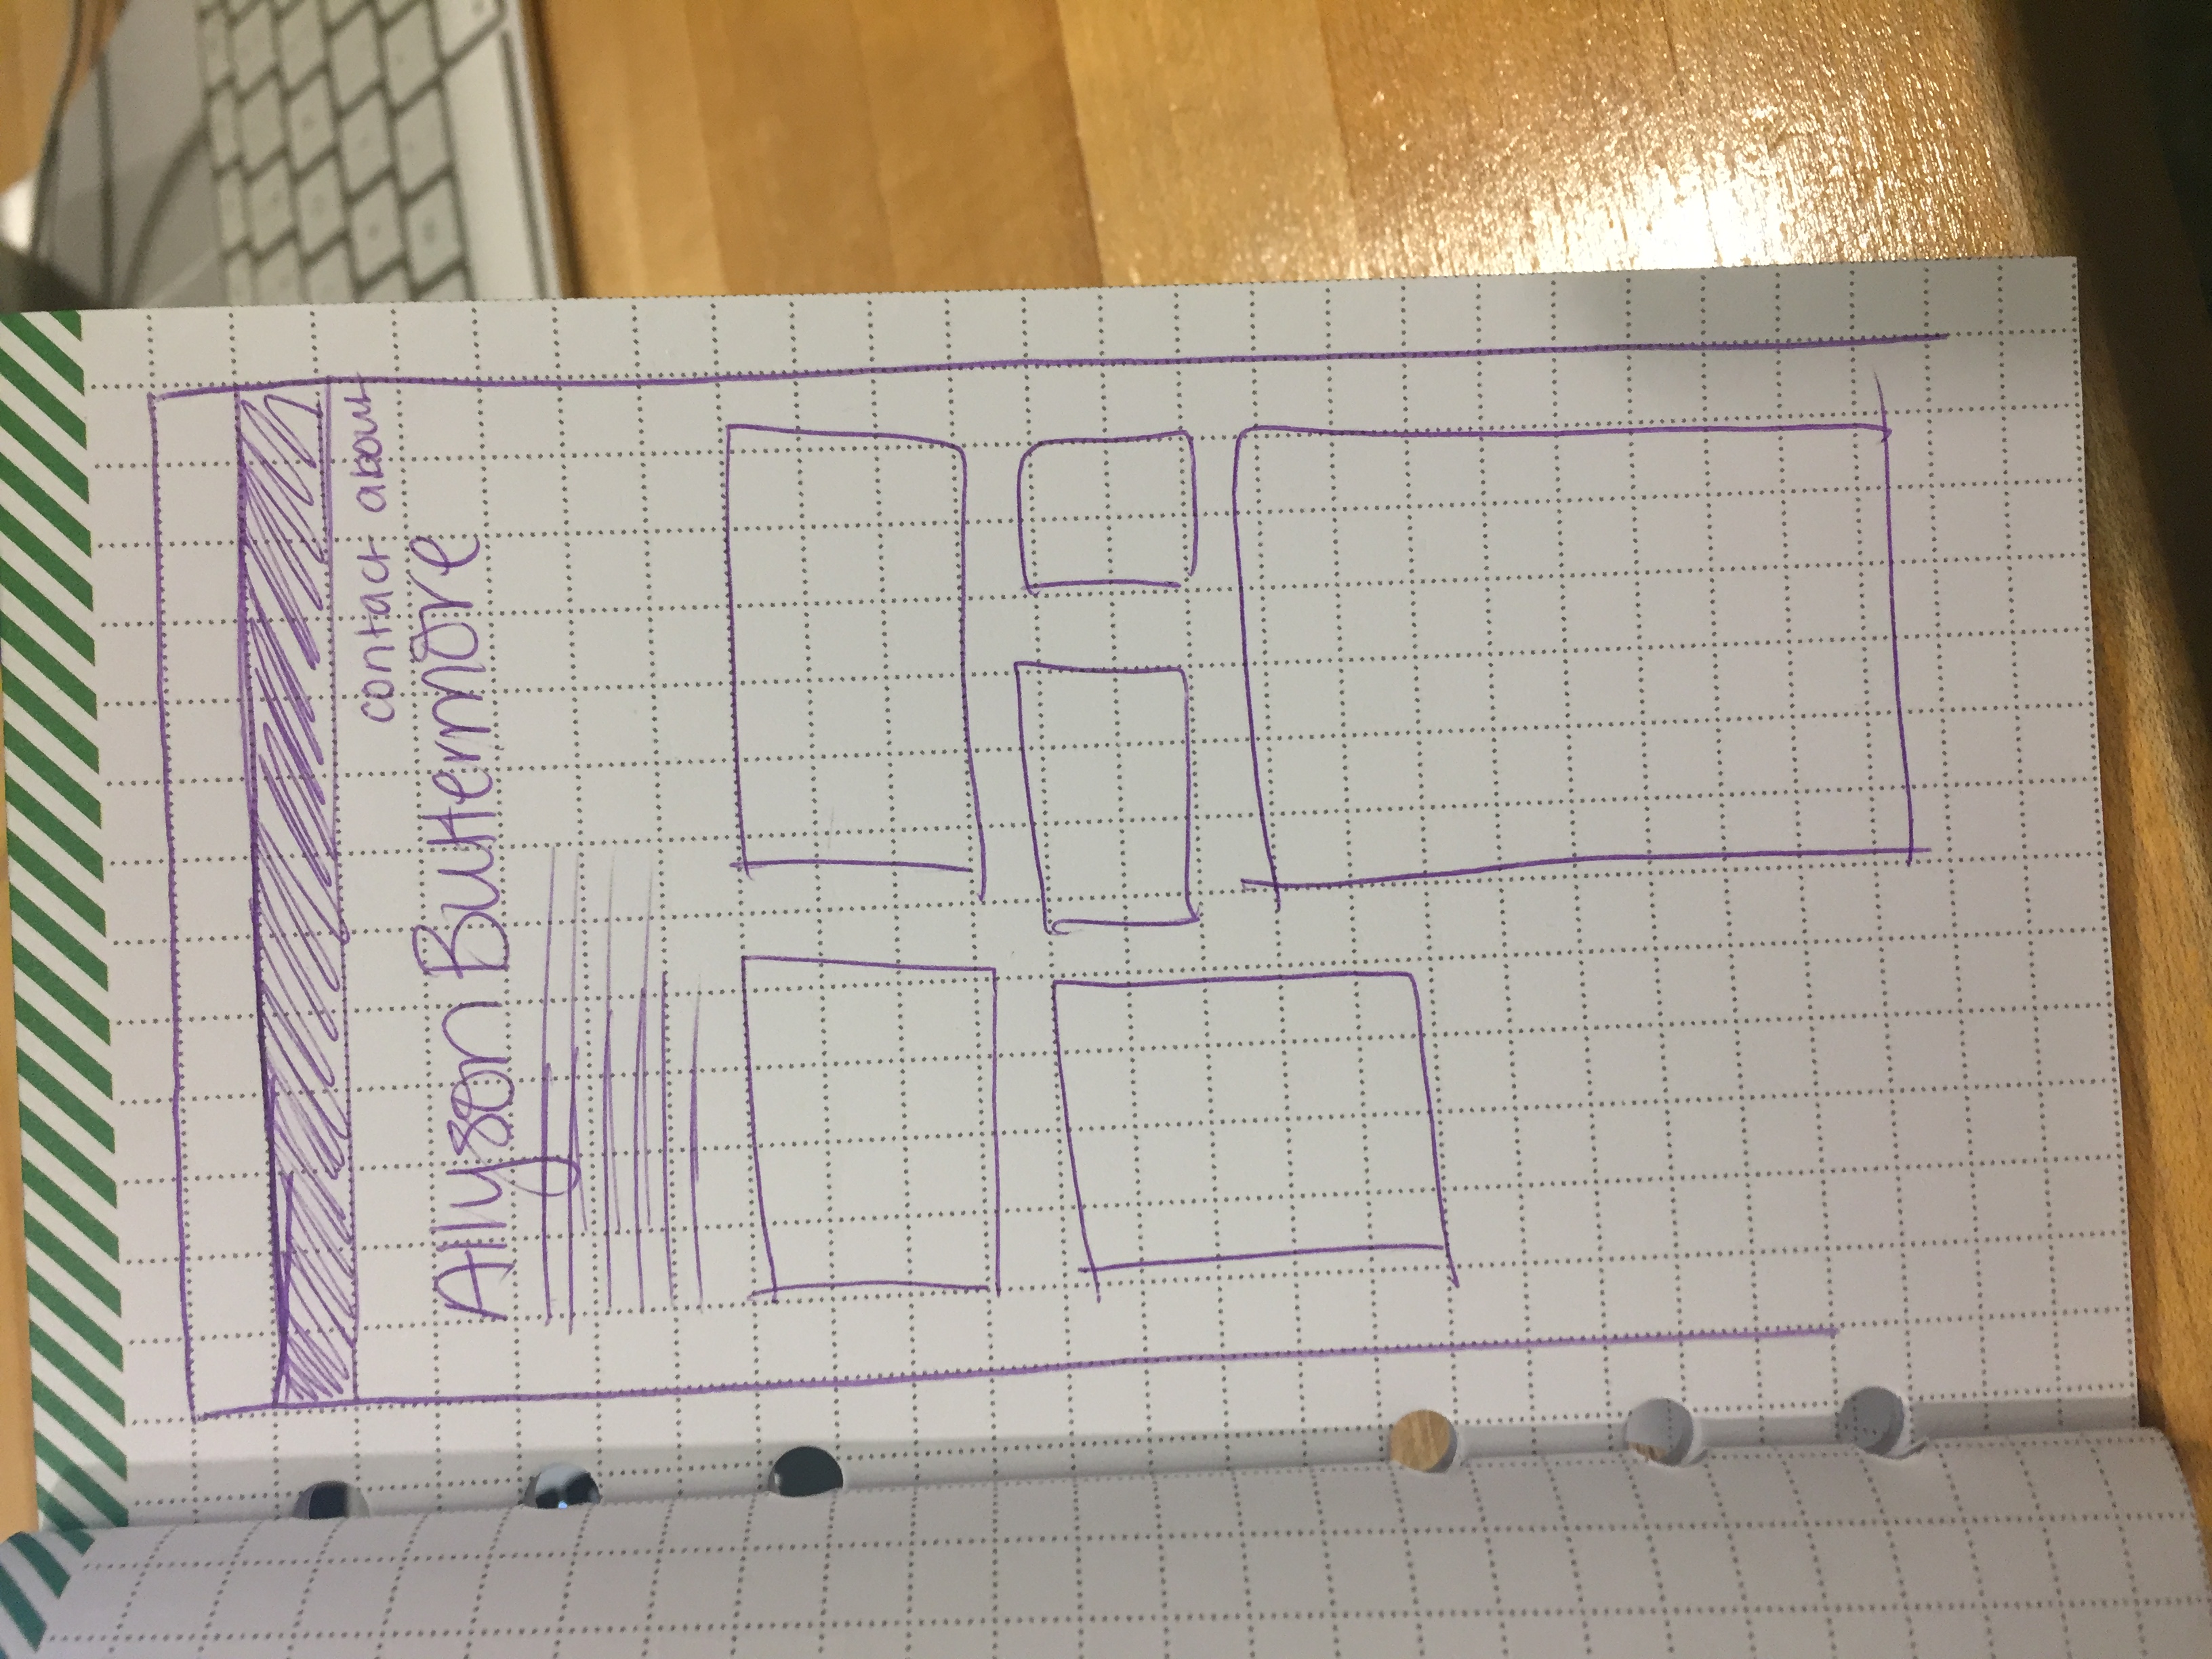 contact about
Allyson Buttermore